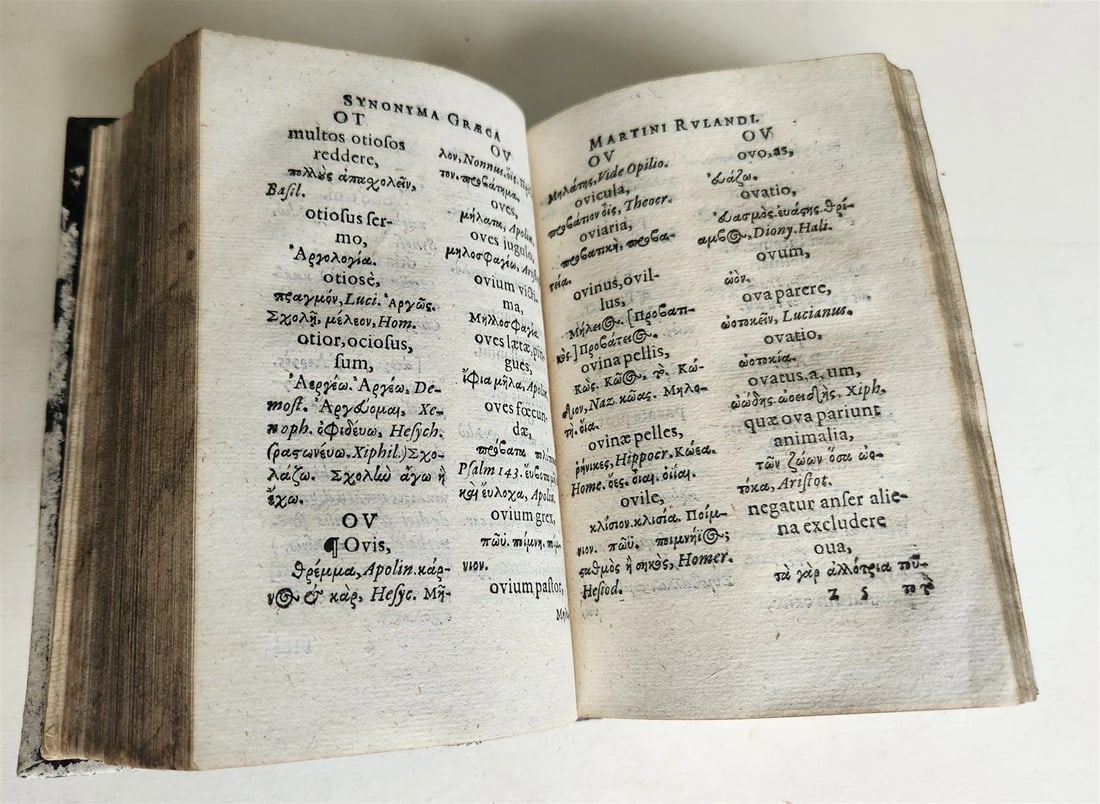 SYNONYMA GRÆCA
OT
multos otiosos
reddere,
πολλοὺς ἀπασχολεῖν,
Basil.
otiosus ser-
mo,
Ἀργολογία.
otiosè,
Luci. Ἀργῶς.
Σχολῇ, μέλεον, Hom.
otior, ociosus,
sum,
Ἀεργέω. Ἀργέω, De-
most. Ἀργεύομαι, Xe-
noph. ὀφιδεύω, Hesych.
(ραστωνεύω. Xiphil.) Σχο-
λάζω. Σχολὴν ἄγω ἢ
ἔχω.
OV
¶ Ovis,
θρέμμα, Apolin. κάρ-
νος καὶ κάρ, Hesyc. Μῆ-
OV
λον, Nonnus. ὄϊς. Πρό-
τον. προβάτημα.
oves,
μήλατα, Apolin.
oves jugulo,
μηλοσφαγέω, Aris
ovium victi-
ma,
Μηλοσφαγία.
oves lætæ, pin-
gues,
ἴφια μῆλα, Apolin
oves fœcun-
dæ,
πρόβατα
Psalm 143.
καὶ εὔλοχα, Apolin.
ovium grex,
πῶϋ. ποίμνη. ποίμ-
νιον.
ovium pastor,
MARTINI RVLANDI.
OV
Μηλάτης, Vide Opilio.
ovicula,
προβάτιον ὄϊς, Theocr.
oviaria,
προβατικὴ, προβα-
τεία.
ovinus, ovil-
lus,
Μήλειος. [Προβατι-
κὸς.] Προβάτειος.
ovina pellis,
Κῶς. Κῶος, τὸ. Κώ-
διον, Naz. κῶας. Μηλω-
τὴ. ὄϊα.
ovinæ pelles,
ῥήνικες, Hippocr. Κώεα.
Home. ὄες. ὄιαι. ὀΐιαι.
ovile,
κλίσιον. κλισία. Ποίμ-
νιον. πῶϋ. ποιμνήϊος
σταθμὸς ἢ σηκὸς, Homer.
Hesiod.
OV
ovo, as,
Εὐάζω.
ovatio,
Εὐασμὸς. εὐάσης. θρί-
αμβος, Diony. Hali.
ovum,
ὠὸν.
ova parere,
ὠοτοκεῖν, Lucianus.
ovatio,
ὠοτοκία.
ovatus, a, um,
ὠώδης. ὠοειδὴς, Xiph.
quæ ova pariunt
animalia,
τῶν ζώων ὅσα ὠο-
τόκα, Aristot.
negatur anser alie-
na excludere
oua,
τὰ γὰρ ἀλλότρια τοῦ-
Z 5
το τὸ